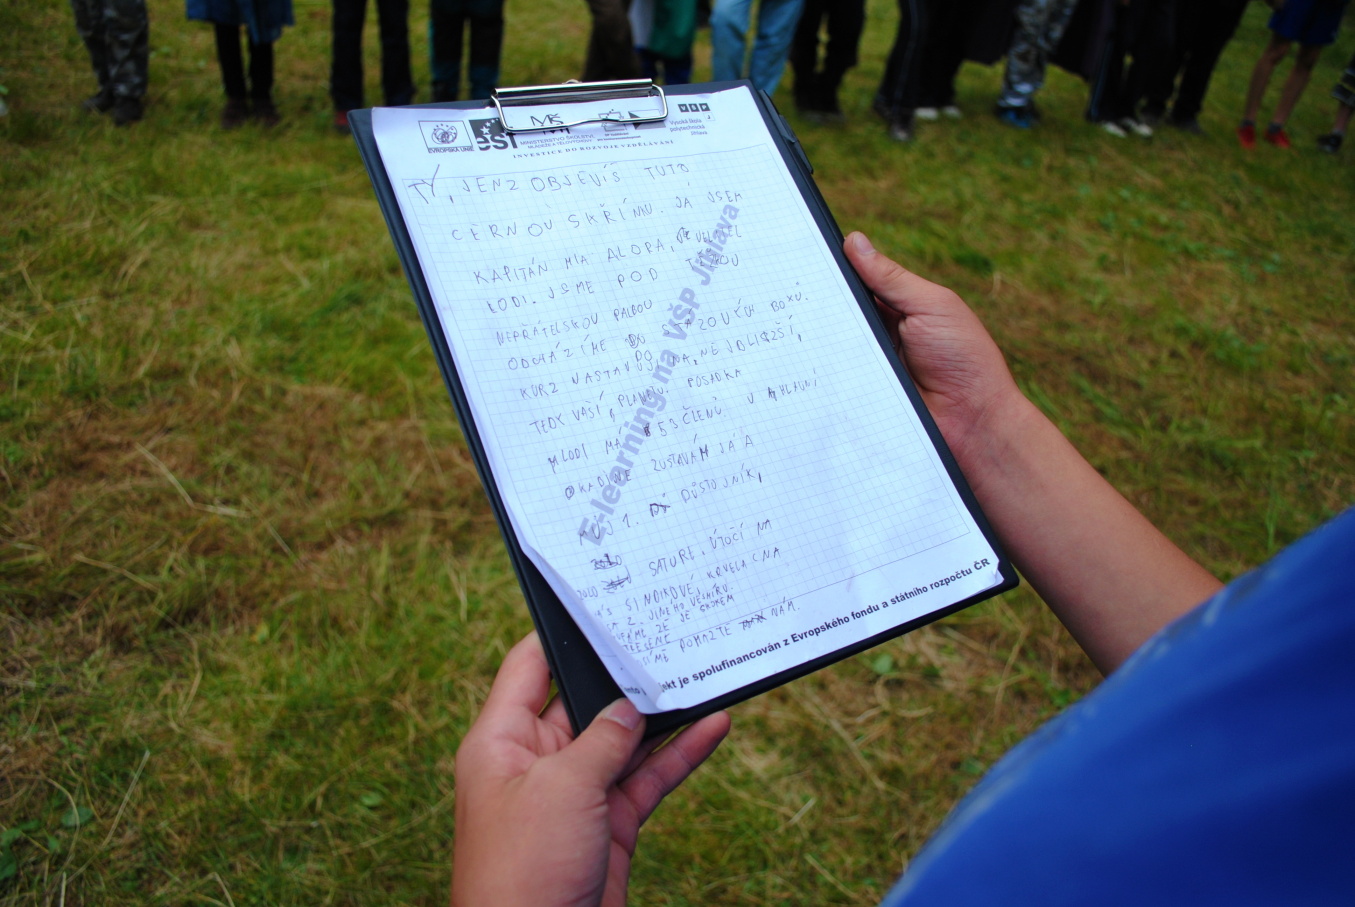 EVROPSKÁ UNIE
MINISTERSTVO ŠKOLSTVÍ,
MLÁDEŽE A TĚLOVÝCHOVY
Vysoká škola
polytechnická
Jihlava
INVESTICE DO ROZVOJE VZDĚLÁVÁNÍ
TY, JENŽ OBJEVÍŠ TUTO
ČERNOU SKŘÍŇKU. JÁ JSEM
KAPITÁN MIA ALOPA, VELITEL
LODI. JSME POD TĚŽKOU
NEPŘÁTELSKOU PALBOU
ODCHÁZÍME DO BOXŮ.
KURZ NASTAVUJI NA, NEJBLIŽŠÍ,
TEDY VAŠÍ, PLANETU. POSÁDKA
LODI MÁ 53 ČLENŮ V HLAVNÍ
ZŮSTAVÁM JÁ A
1. DŮSTOJNÍK,
SATURE. ÚTOČÍ NA
KRVELAČNÁ
Z JINÉHO VESMÍRU.
ŽE JE SKOREM
POMOZTE NÁM.
E-learning na VŠP Jihlava
jekt je spolufinancován z Evropského fondu a státního rozpočtu ČR